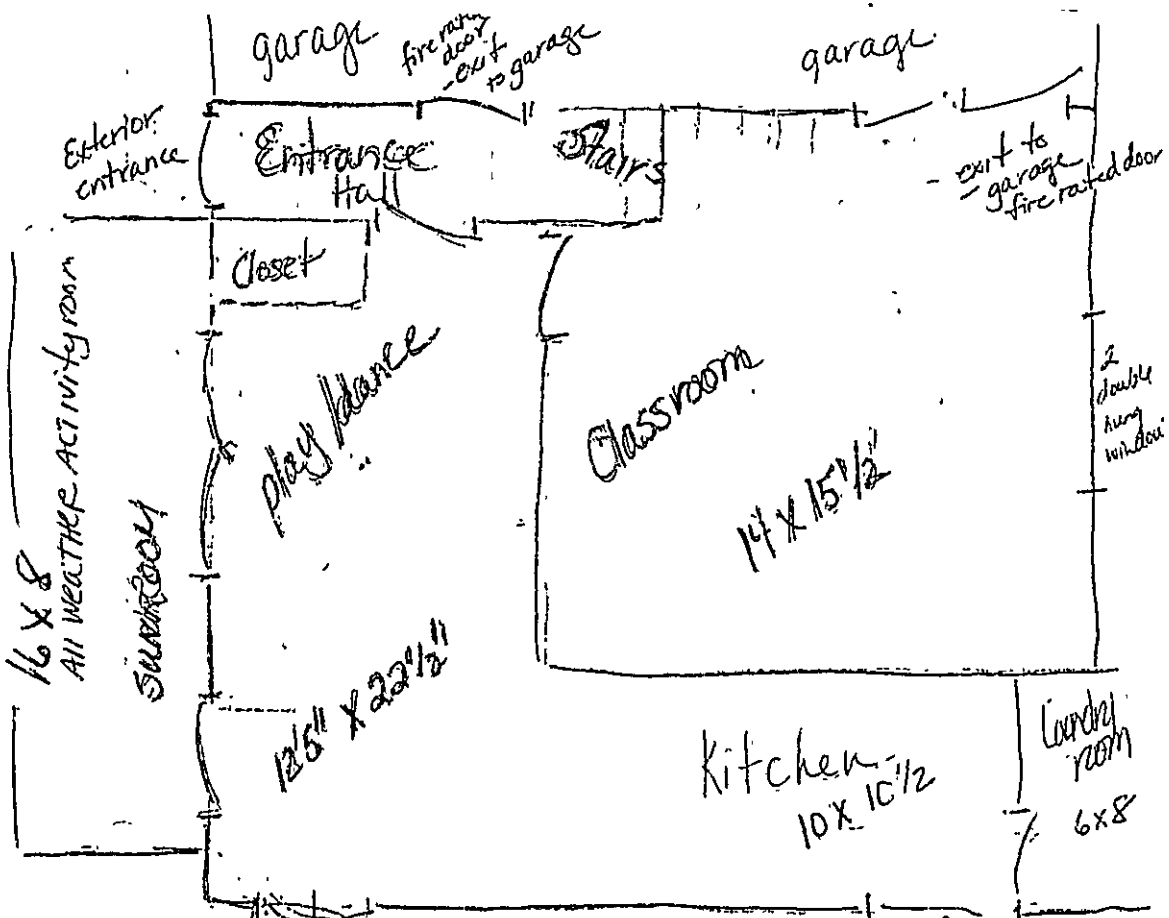 garage
fire rated
door
-exit
to garage
garage
Exterior
entrance
Entrance
Hall
Stairs
- exit to
- garage
fire rated door
Closet
16 x 8
All WEATHER ACTIVITY room
Sunroom
play/dance
12'5" x 22'1/2"
Classroom
14 x 15'1/2"
2
double
hung
window
Kitchen
10 x 10'1/2
Laundry
room
6x8